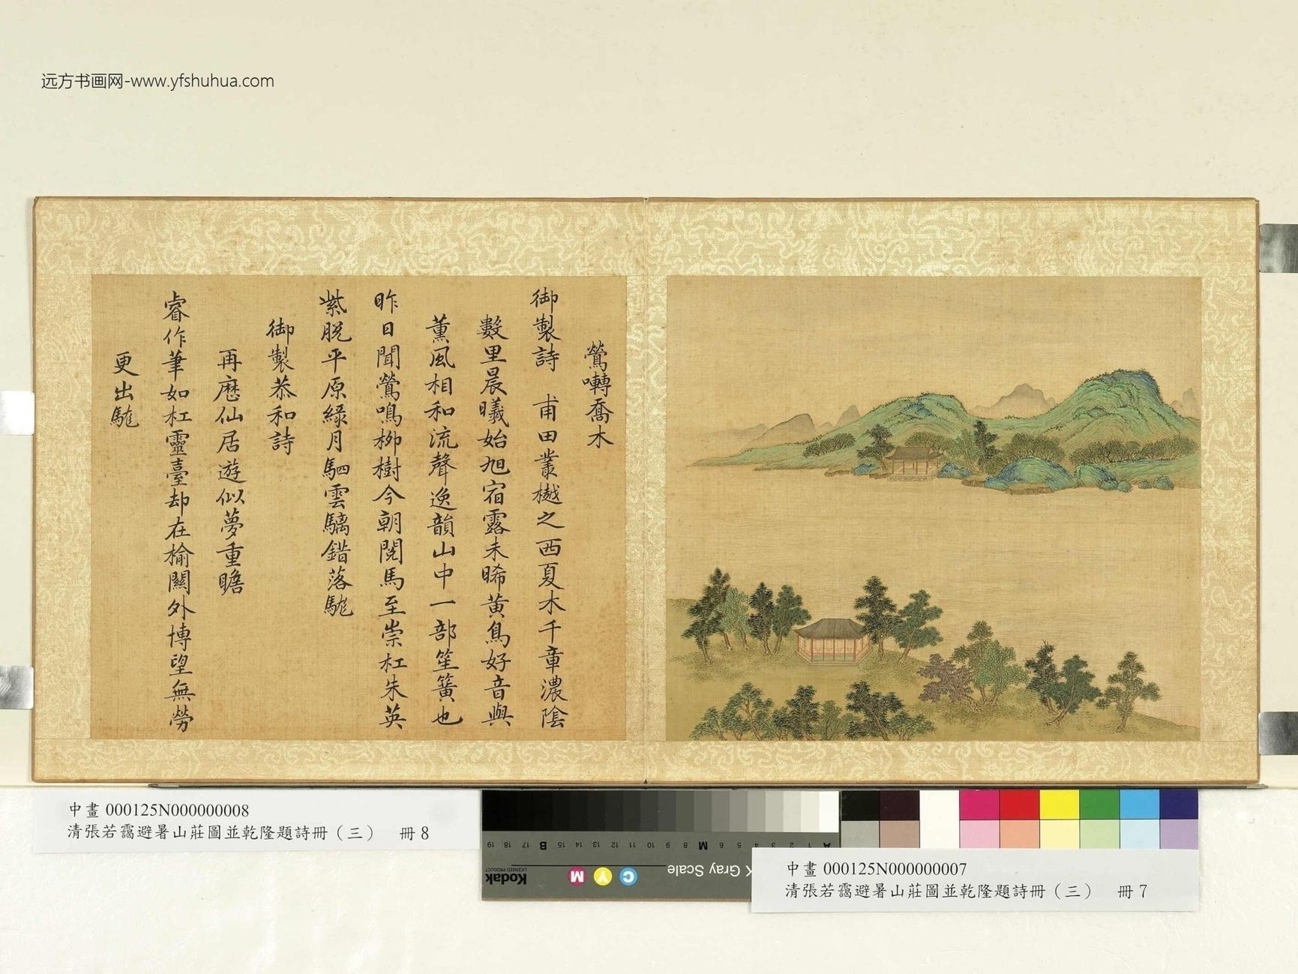 远方书画网-www.yfshuhua.com
鶯囀喬木
御製詩 甫田叢樾之西夏木千章濃陰
數里晨曦始旭宿露未晞黃鳥好音與
薰風相和流聲逸韻山中一部笙簧也
昨日聞鶯鳴柳樹今朝閱馬至崇杠朱英
紫脫平原綠月駟雲驪錯落駹
御製恭和詩
再歷仙居遊似夢重瞻
睿作筆如杠靈臺却在榆關外博望無勞
更出駹
中畫 000125N000000008
清張若靄避暑山莊圖並乾隆題詩冊（三） 冊8
中畫 000125N000000007
清張若靄避暑山莊圖並乾隆題詩冊（三） 冊7
Kodak
LICENSED PRODUCT
Gray Scale
C
Y
M
A 1 2 3 4 5 6 M 8 9 10 11 12 13 14 15 B 17 18 19